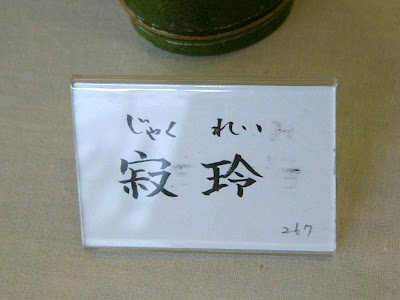 じゃく れい
寂 玲
267